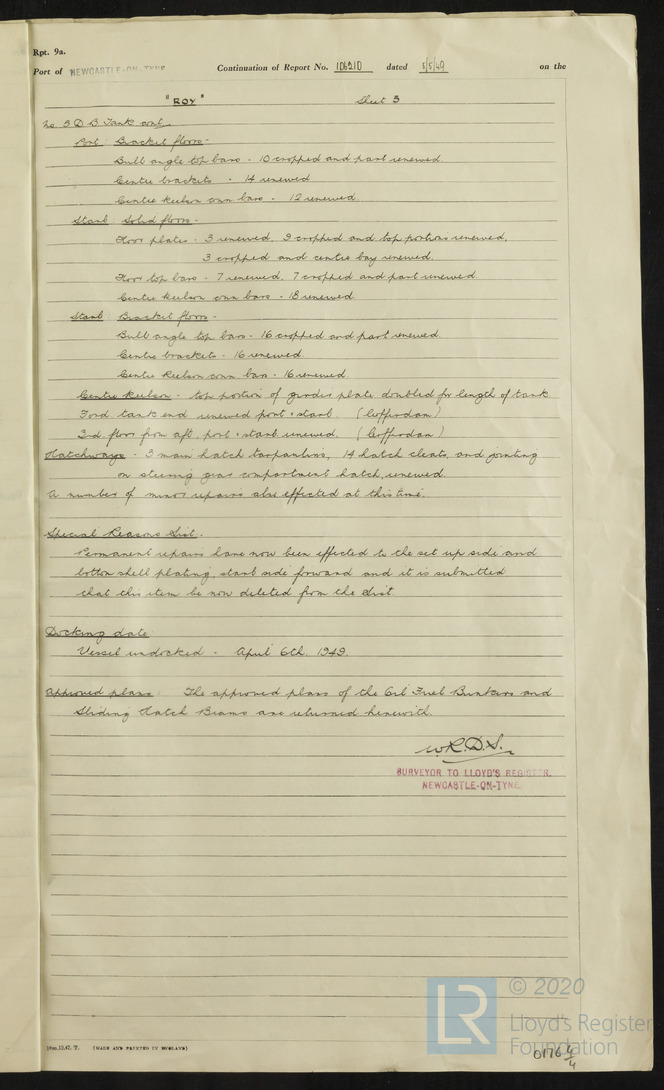 Rpt. 9a.
Port of NEWCASTLE-ON-TYNE Continuation of Report No. 106210 dated 5/5/49 on the
"ROY" Sheet 5
No 3 D B Tank cont.
Port Bracket floors -
Bulb angle top bars - 10 cropped and part renewed.
Centre brackets - 14 renewed
Centre keelson conn bars - 12 renewed.
Starb Solid floors -
Floor plates - 3 renewed, 9 cropped and top portions renewed,
3 cropped and centre bay renewed.
Floor top bars - 7 renewed, 7 cropped and part renewed.
Centre keelson conn bars - 18 renewed
Starb Bracket floors -
Bulb angle top bars - 16 cropped and part renewed.
Centre brackets - 16 renewed.
Centre keelson conn bars - 16 renewed.
Centre keelson - top portion of girder plate doubled for length of tank
Ford tank end renewed port & starb. (Cofferdam)
3rd floor from aft, port & starb renewed. (Cofferdam)
Hatchways - 3 main hatch tarpaulins, 14 hatch cleats, and jointing
on steering gear compartment hatch, renewed.
A number of minor repairs also effected at this time.
Special Reasons List.
Permanent repairs have now been effected to the set up side and
bottom shell plating, starb side forward and it is submitted
that this item be now deleted from the List
Docking date
Vessel undocked - April 6th. 1949.
Approved plans The approved plans of the Oil Fuel Bunkers and
Sliding Hatch Beams are returned herewith.
W.R.D.S.
SURVEYOR TO LLOYD'S REGISTER.
NEWCASTLE-ON-TYNE.
(MADE AND PRINTED IN ENGLAND)
LR © 2020
Lloyd's Register
Foundation
0176 4/4